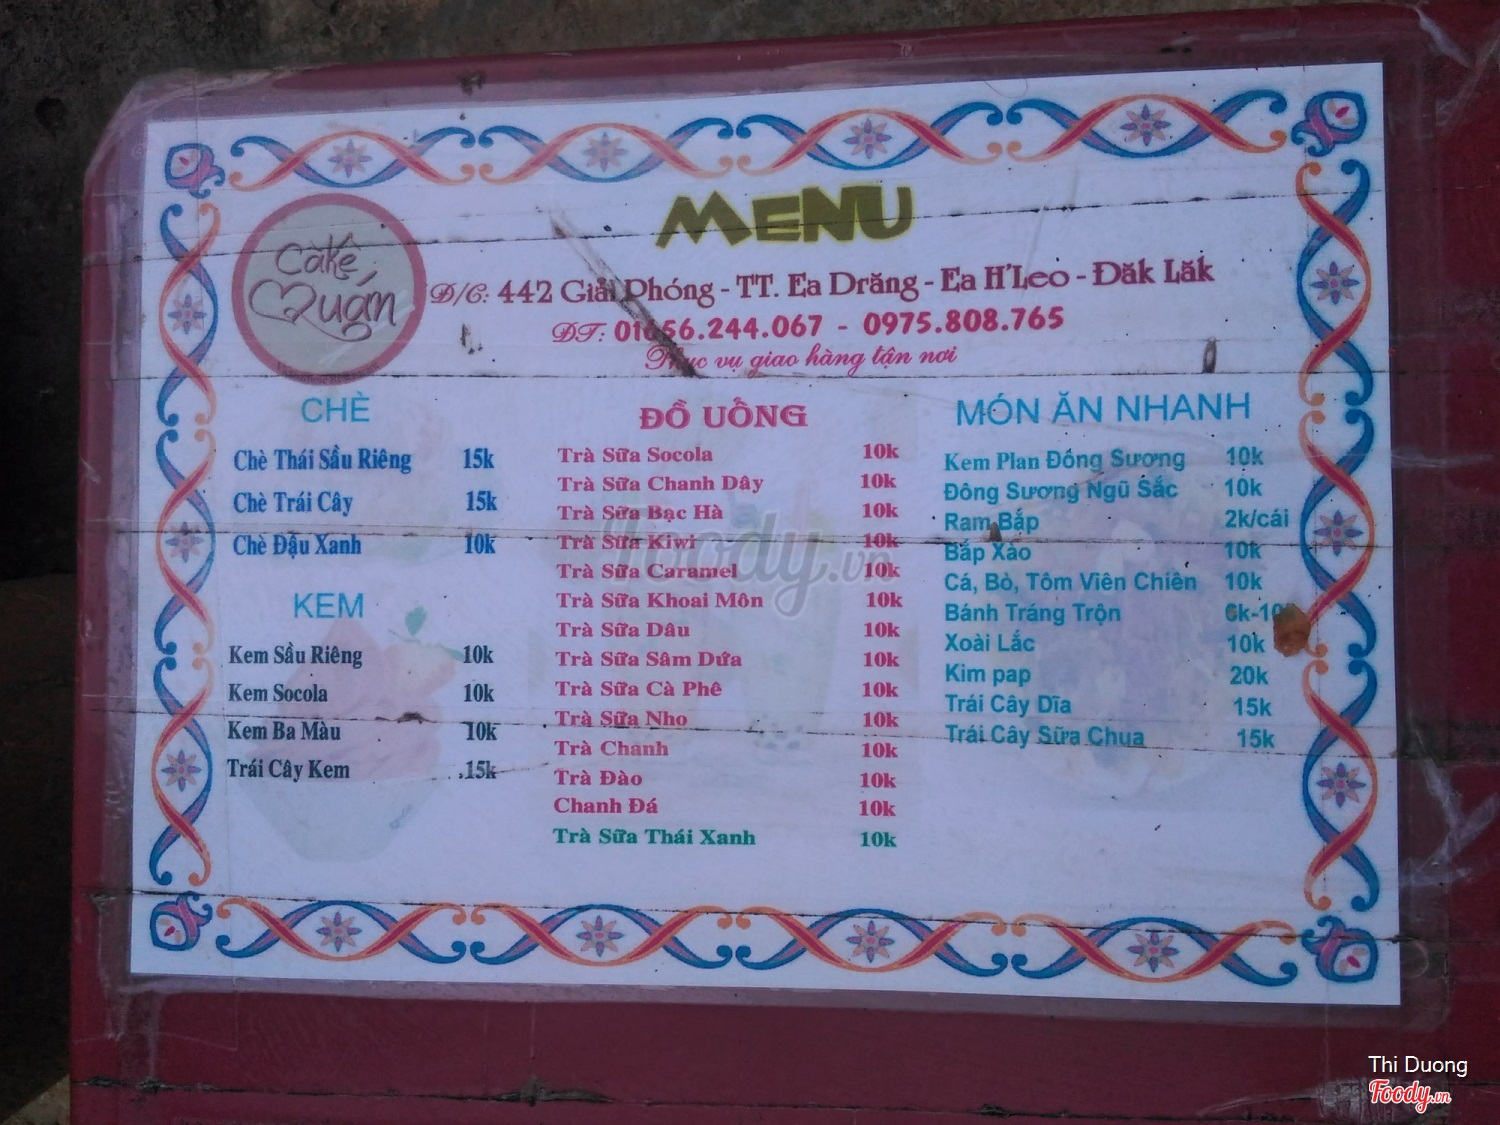 MENU
CàKê
Quán
Đ/C: 442 Giải Phóng - TT. Ea Drăng - Ea H'Leo - Đăk Lăk
ĐT: 01656.244.067 - 0975.808.765
Phục vụ giao hàng tận nơi
CHÈ
Chè Thái Sầu Riêng 15k
Chè Trái Cây 15k
Chè Đậu Xanh 10k
KEM
Kem Sầu Riêng 10k
Kem Socola 10k
Kem Ba Màu 10k
Trái Cây Kem 15k
ĐỒ UỐNG
Trà Sữa Socola 10k
Trà Sữa Chanh Dây 10k
Trà Sữa Bạc Hà 10k
Trà Sữa Kiwi 10k
Trà Sữa Caramel 10k
Trà Sữa Khoai Môn 10k
Trà Sữa Dâu 10k
Trà Sữa Sâm Dứa 10k
Trà Sữa Cà Phê 10k
Trà Sữa Nho 10k
Trà Chanh 10k
Trà Đào 10k
Chanh Đá 10k
Trà Sữa Thái Xanh 10k
MÓN ĂN NHANH
Kem Plan Đông Sương 10k
Đông Sương Ngũ Sắc 10k
Ram Bắp 2k/cái
Bắp Xào 10k
Cá, Bò, Tôm Viên Chiên 10k
Bánh Tráng Trộn
Xoài Lắc 10k
Kim pap 20k
Trái Cây Dĩa 15k
Trái Cây Sữa Chua 15k
Foody.vn
Thi Duong
Foody.vn